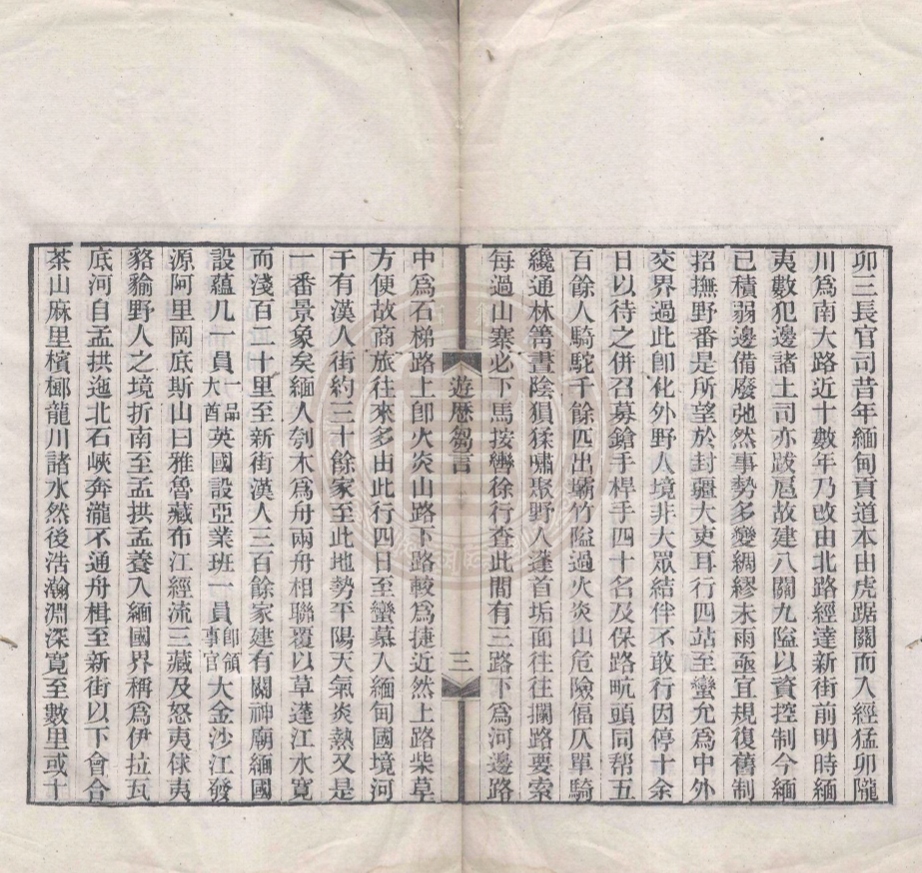 卯三長官司昔年緬甸貢道本由虎踞關而入經猛卯隴
川爲南大路近十數年乃改由北路經達新街前明時緬
夷數犯邊諸土司亦跋扈故建八關九隘以資控制今緬
已積弱邊備廢弛然事勢多變綢繆未雨亟宜規復舊制
招撫野番是所望於封疆大吏耳行四站至蠻允爲中外
交界過此卽化外野人境非大眾結伴不敢行因停十余
日以待之併召募鎗手桿手四十名及保路𡵆頭同幫五
百餘人騎駝千餘匹出壩竹隘過火炎山危險偪仄單騎
纔通林箐晝陰狽猱嘯聚野人蓬首垢面往往攔路要索
每過山寨必下馬按轡徐行查此間有三路下爲河邊路
遊歷芻言
三
中爲石梯路上卽火炎山路下路較爲捷近然上路柴草
方便故商旅往來多由此行四日至蠻慕入緬甸國境河
干有漢人街約三十餘家至此地勢平陽天氣炎熱又是
一番景象矣緬人刳木爲舟兩舟相聯覆以草蓬江水寬
而淺百二十里至新街漢人三百餘家建有關神廟緬國
設蘊几一員一品大酋英國設亞業班一員卽領事官大金沙江發
源阿里岡底斯山曰雅魯藏布江經流三藏及怒夷俅夷
貉貐野人之境折南至孟拱孟養入緬國界稱爲伊拉瓦
底河自孟拱迤北石峽奔瀧不通舟楫至新街以下會合
茶山麻里檳榔龍川諸水然後浩瀚淵深寬至數里或十